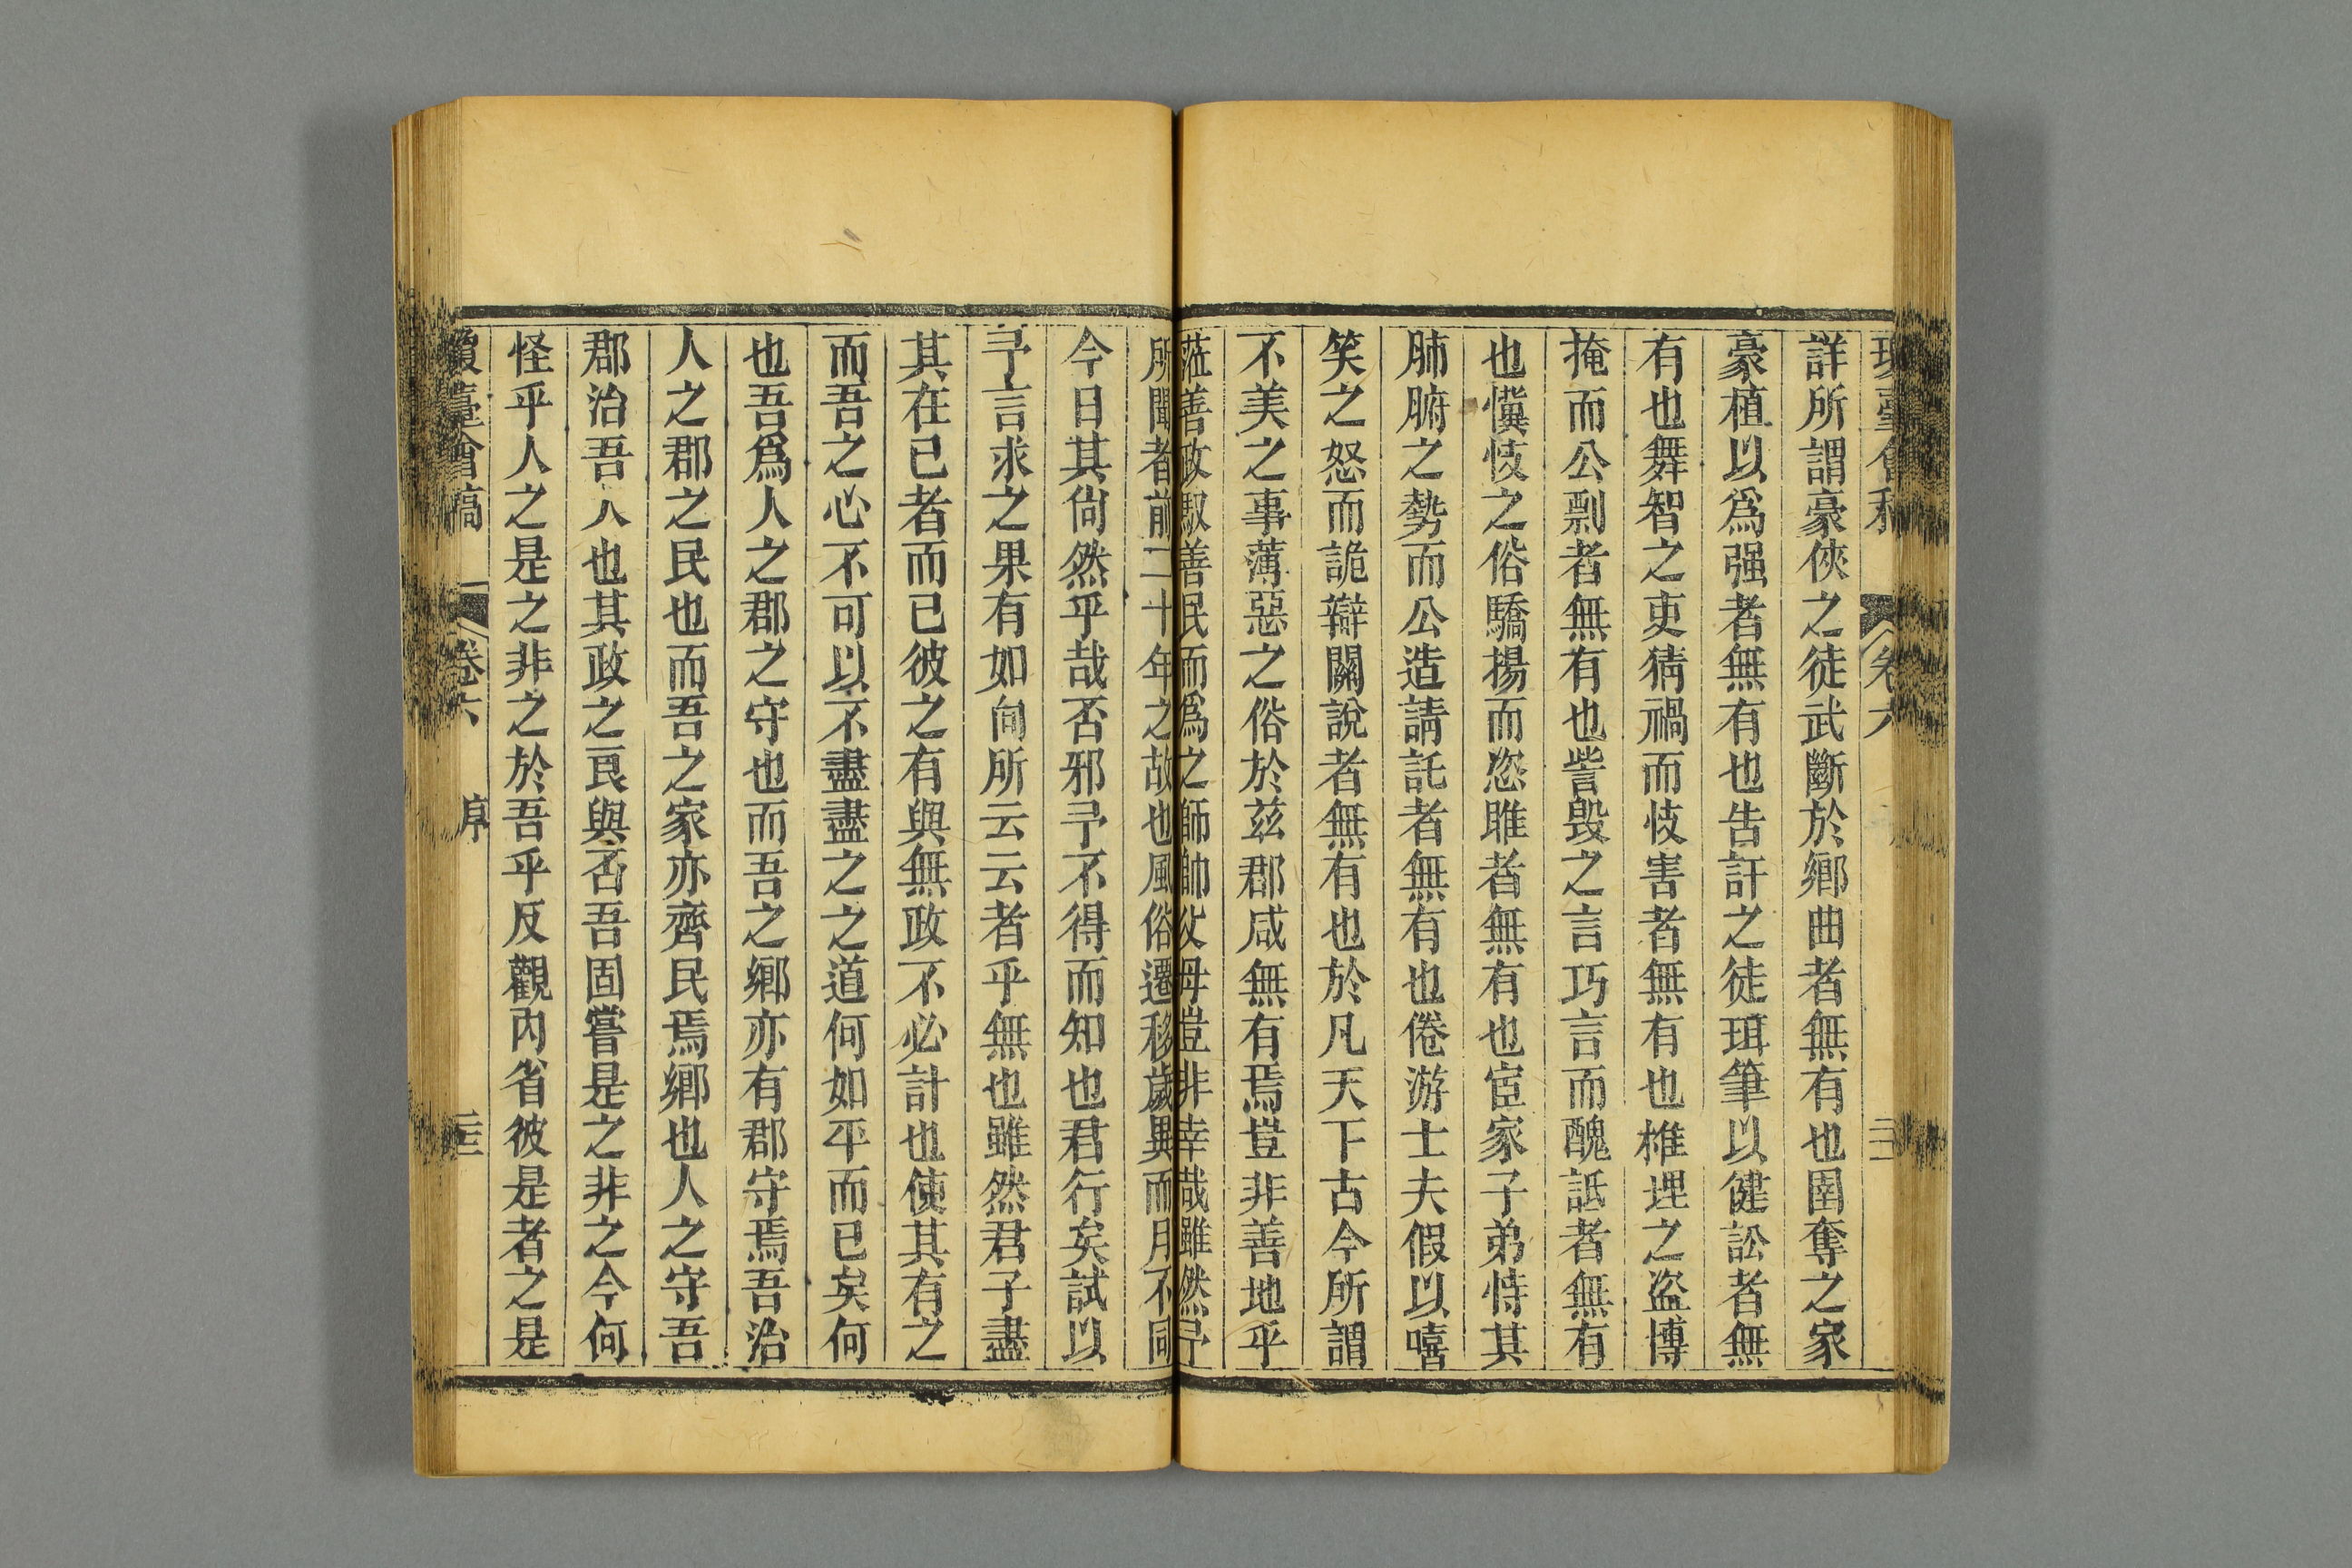 詳所謂豪俠之徒武斷於鄉曲者無有也圉奪之家
豪植以爲强者無有也告訐之徒珥筆以健訟者無
有也舞智之吏猜禍而忮害者無有也椎埋之盗博
掩而公剽者無有也訾毁之言巧言而醜詆者無有
也懻忮之俗驕揚而恣睢者無有也宦家子弟恃其
肺腑之勢而公造請託者無有也倦游士夫假以嘻
笑之怒而詭辯關說者無有也於凡天下古今所謂
不美之事薄惡之俗於茲郡咸無有焉豈非善地乎
蒞善政馭善民而爲之師帥父母豈非幸哉雖然予
所聞者前二十年之故也風俗遷移歲異而月不同
今日其尙然乎哉否邪予不得而知也君行矣試以
予言求之果有如向所云云者乎無也雖然君子盡
其在已者而已彼之有與無政不必計也使其有之
而吾之心不可以不盡盡之之道何如平而已矣何
也吾爲人之郡之守也而吾之鄉亦有郡守焉吾治
人之郡之民也而吾之家亦齊民焉鄉也人之守吾
郡治吾人也其政之良與否吾固嘗是之非之今何
怪乎人之是之非之於吾乎反觀內省彼是者之是
瓊臺會稿 卷六 序